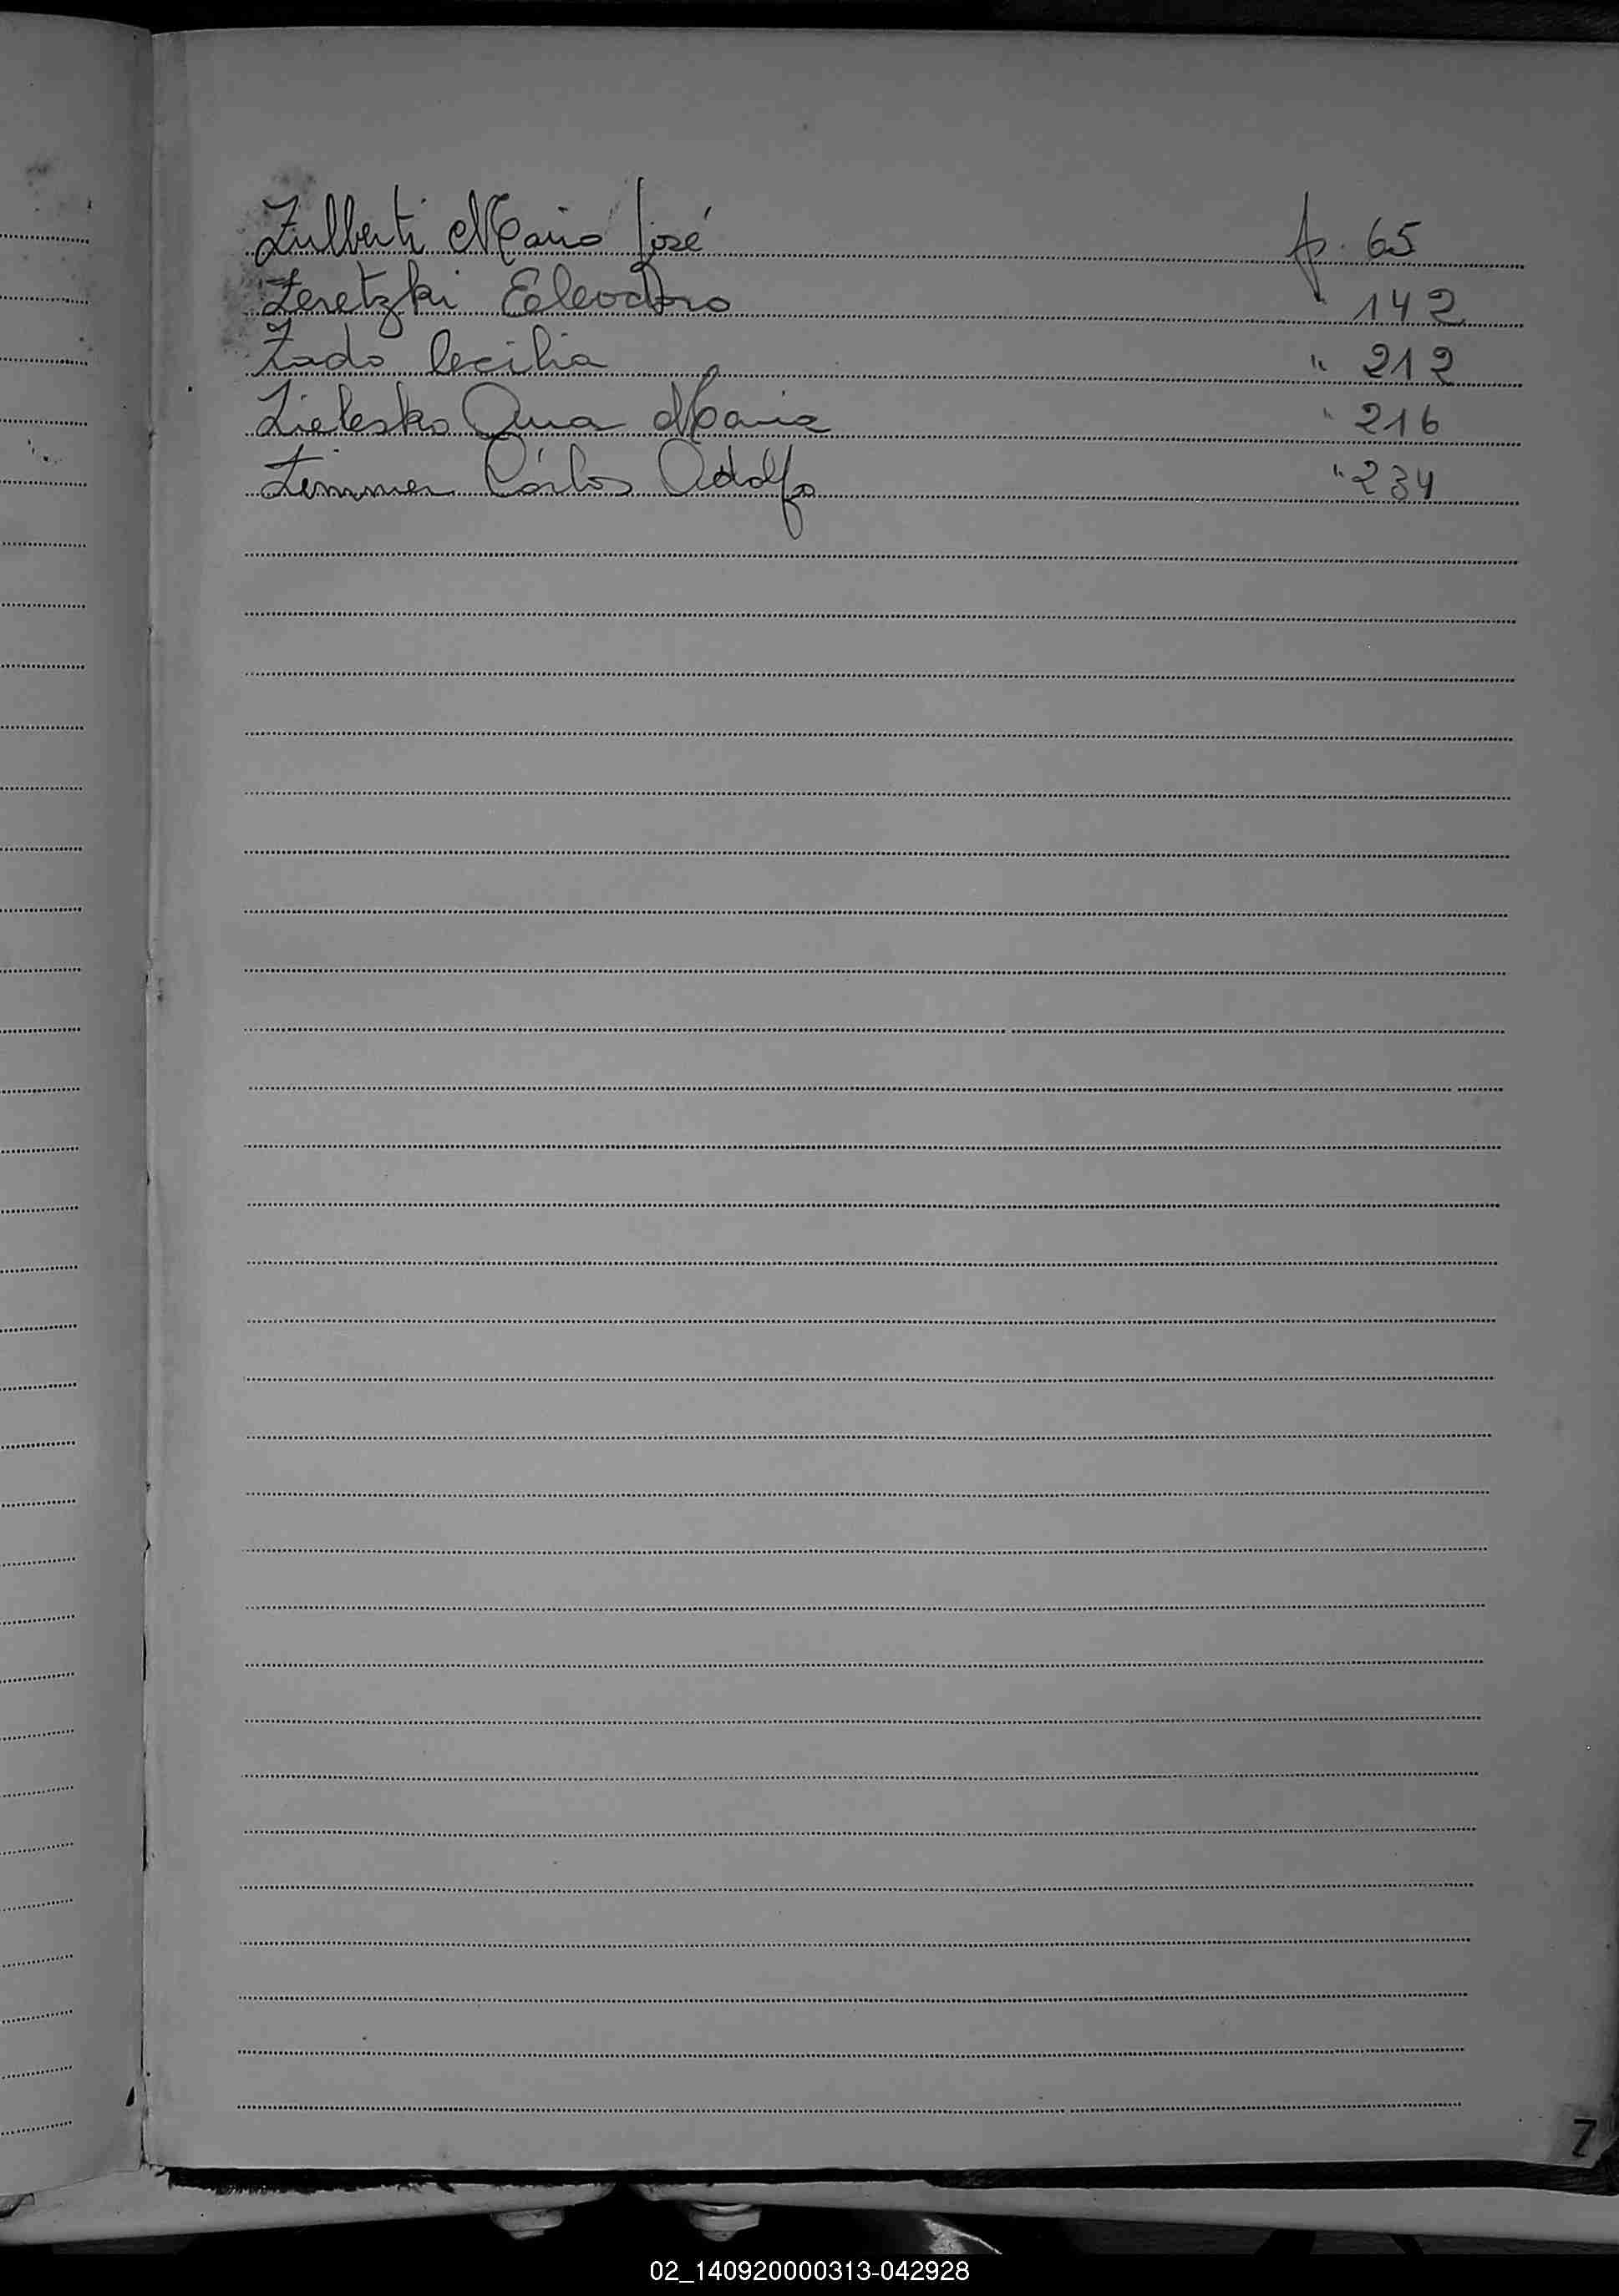 Zulberti Mario José p. 65
Zeretzki Eeleodoro " 142
Zado Cecilia " 212
Zielesko Ana Maria " 216
Zimmer Cárlos Adolfo " 234
Z
02_140920000313-042928